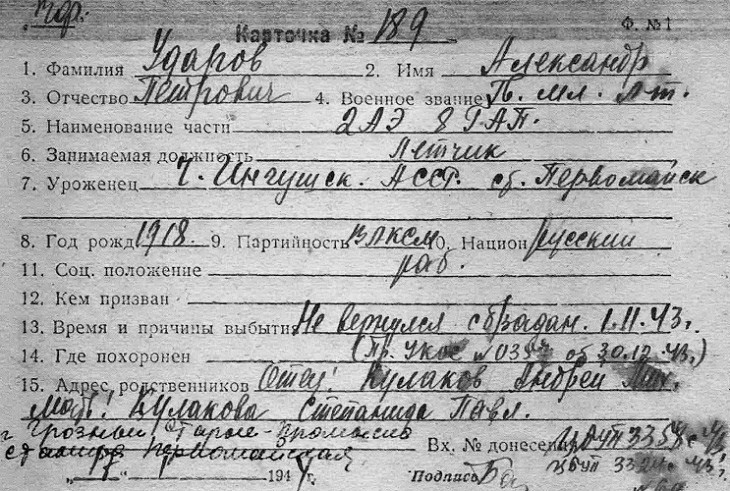 Карточка № 189 Ф. №1
1. Фамилия Ударов 2. Имя Александр
3. Отчество Петрович 4. Военное звание Гв. мл. л-т.
5. Наименование части 2 АЭ 8 ГАП.
6. Занимаемая должность Летчик
7. Уроженец Ч. Ингушск. АССР. ст. Первомайск
8. Год рожд 1918. 9. Партийность ВЛКСМ 10. Национ Русский
11. Соц. положение раб.
12. Кем призван
13. Время и причины выбытия Не вернулся с б/задан. 1.11.43г.
14. Где похоронен (Пр. от 30.12.43г.)
15. Адрес родственников Отец: Кулаков Андрей Мих.
Мать: Кулакова Степанида Павл.
г Грозный, Старые-промысла
станица Первомайская Вх. № донесения
194 г. Подпись